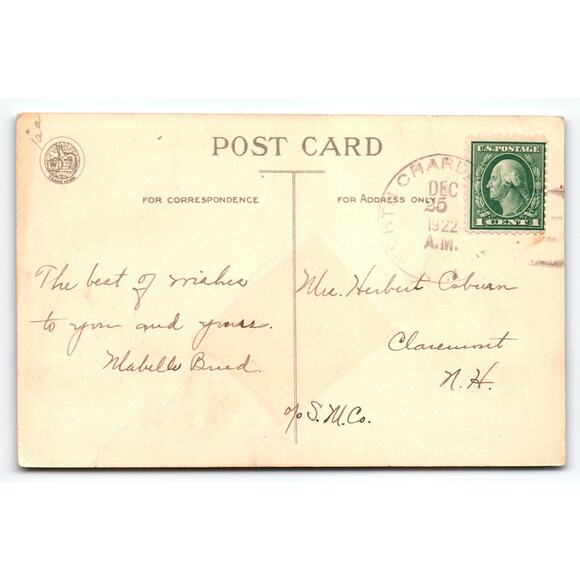 POST CARD
FOR CORRESPONDENCE
FOR ADDRESS ONLY
U.S. POSTAGE
1 CENT 1
NORTH CHARL
DEC
25
1922
A.M.
The best of wishes
to you and yours.
Mabelle
Mrs. Herbert Coburn
Claremont
N.H.
c/o S.M.Co.